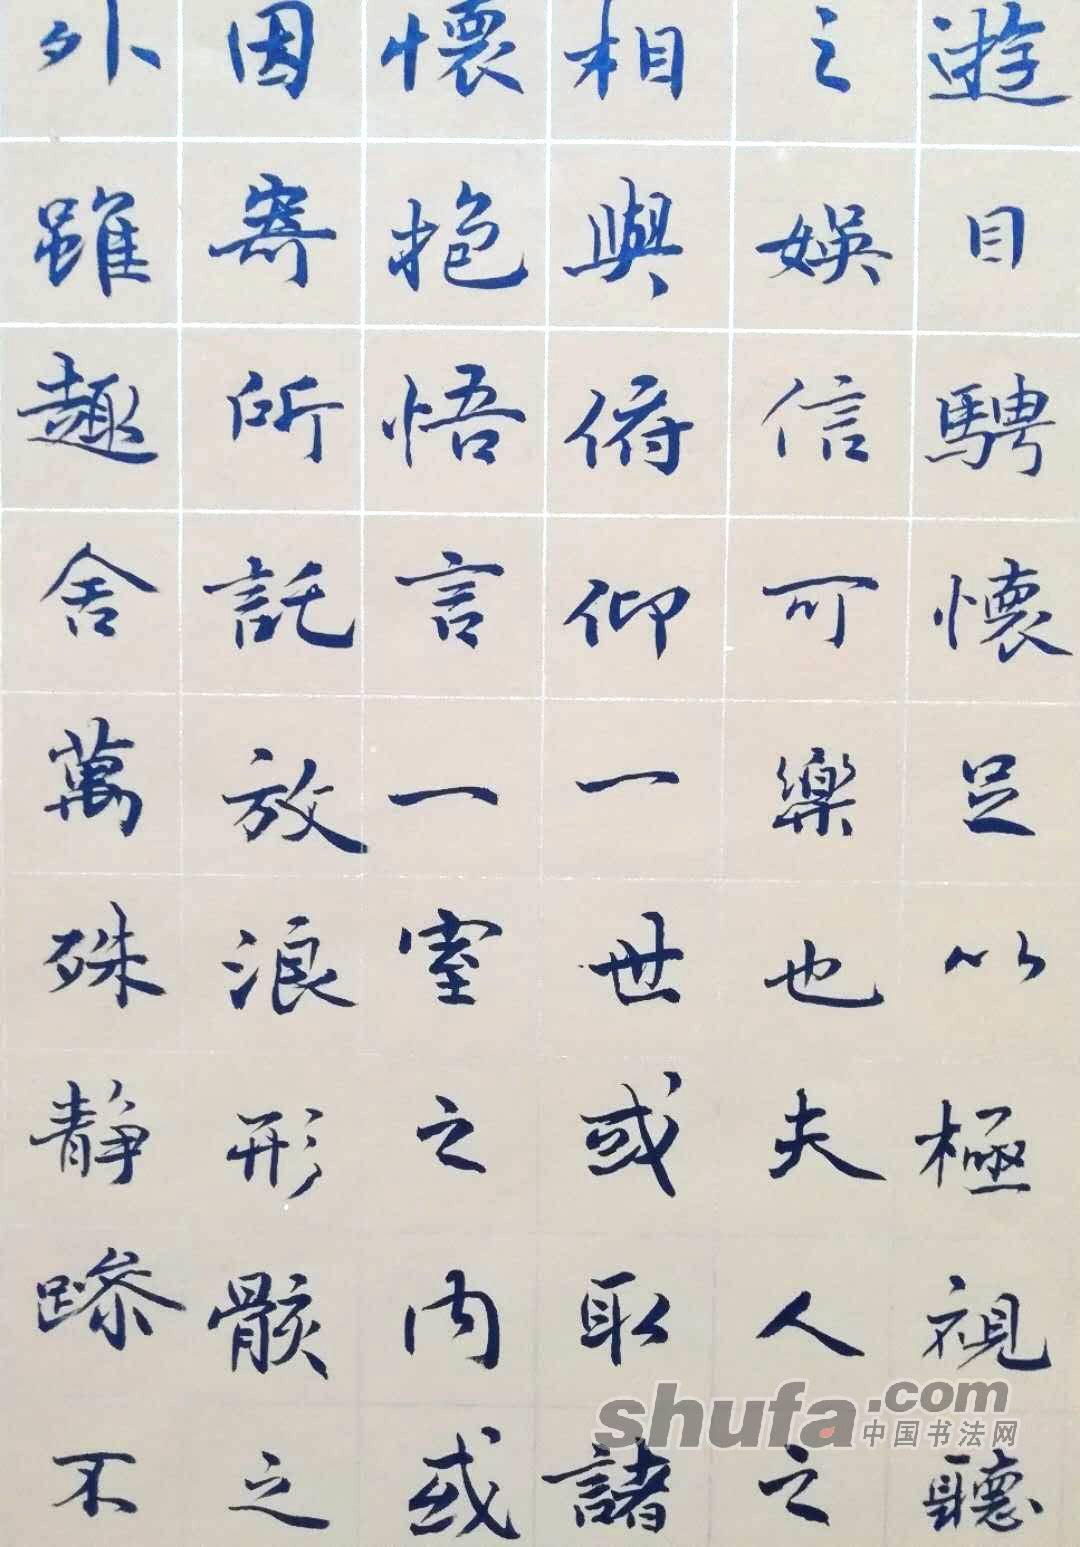 遊目騁懷足以極視聽
之娛信可樂也夫人之
相與俯仰一世或取諸
懷抱悟言一室之內或
因寄所託放浪形骸之
外雖趣舍萬殊靜躁不
shufa.com
中国书法网